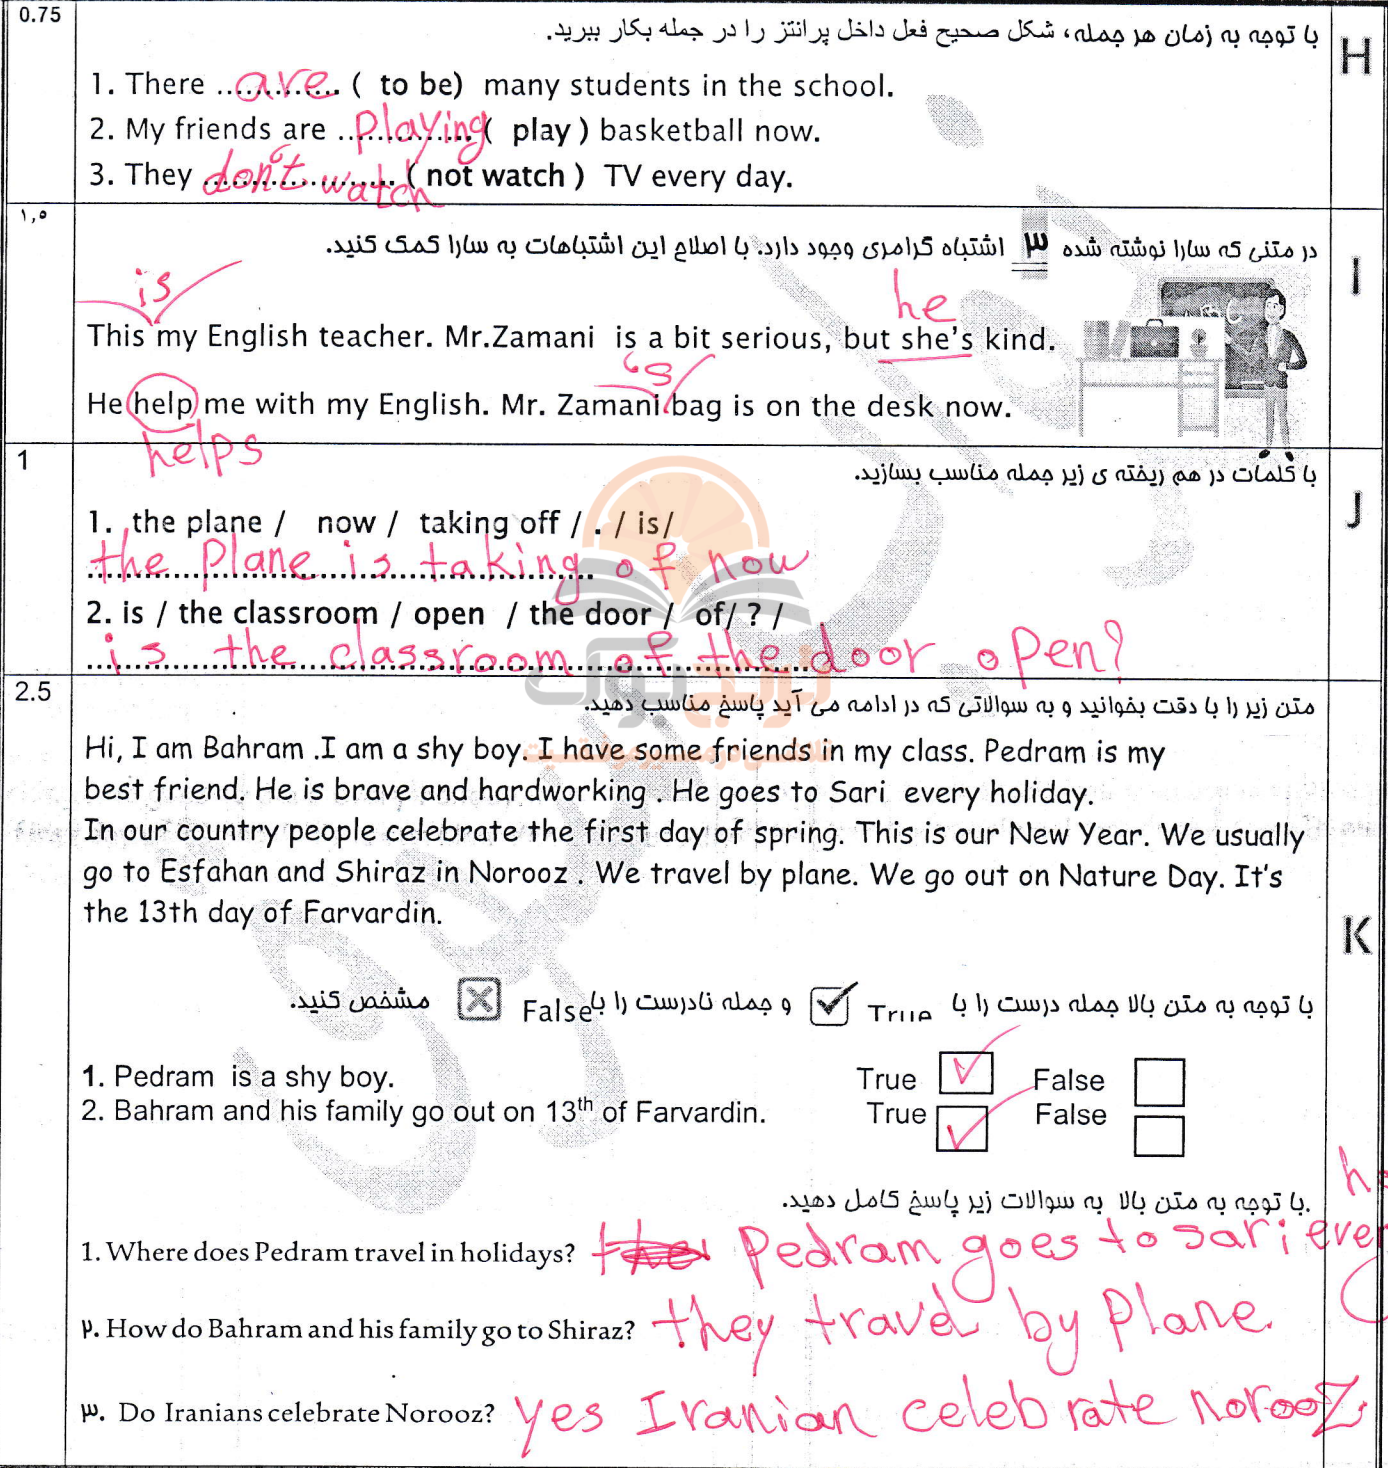 0.75
با توجه به زمان هر جمله، شکل صحیح فعل داخل پرانتز را در جمله بکار ببرید.
H
1. There ..are.. ( to be) many students in the school.
2. My friends are ..playing.. ( play ) basketball now.
3. They ..don't watch.. ( not watch ) TV every day.
۱,۵
در متنی که سارا نوشته شده ۳ اشتباه گرامری وجود دارد. با اصلاح این اشتباهات به سارا کمک کنید.
I
is
he
This my English teacher. Mr.Zamani is a bit serious, but she's kind.
's
He help me with my English. Mr. Zamani bag is on the desk now.
helps
1
با کلمات در هم ریخته ی زیر جمله مناسب بسازید.
J
1. the plane / now / taking off / . / is/
the plane is taking of now
2. is / the classroom / open / the door / of/ ? /
is the classroom of the door open?
2.5
متن زیر را با دقت بخوانید و به سوالاتی که در ادامه می آید پاسخ مناسب دهید.
Hi, I am Bahram .I am a shy boy. I have some friends in my class. Pedram is my
best friend. He is brave and hardworking . He goes to Sari every holiday.
In our country people celebrate the first day of spring. This is our New Year. We usually
go to Esfahan and Shiraz in Norooz . We travel by plane. We go out on Nature Day. It's
the 13th day of Farvardin.
K
با توجه به متن بالا جمله درست را با True و جمله نادرست را با False مشخص کنید.
1. Pedram is a shy boy. True False
2. Bahram and his family go out on 13th of Farvardin. True False
با توجه به متن بالا به سوالات زیر پاسخ کامل دهید.
1. Where does Pedram travel in holidays? Pedram goes to sari
۲. How do Bahram and his family go to Shiraz? they travel by Plane.
۳. Do Iranians celebrate Norooz? yes Iranian celebrate norooz.